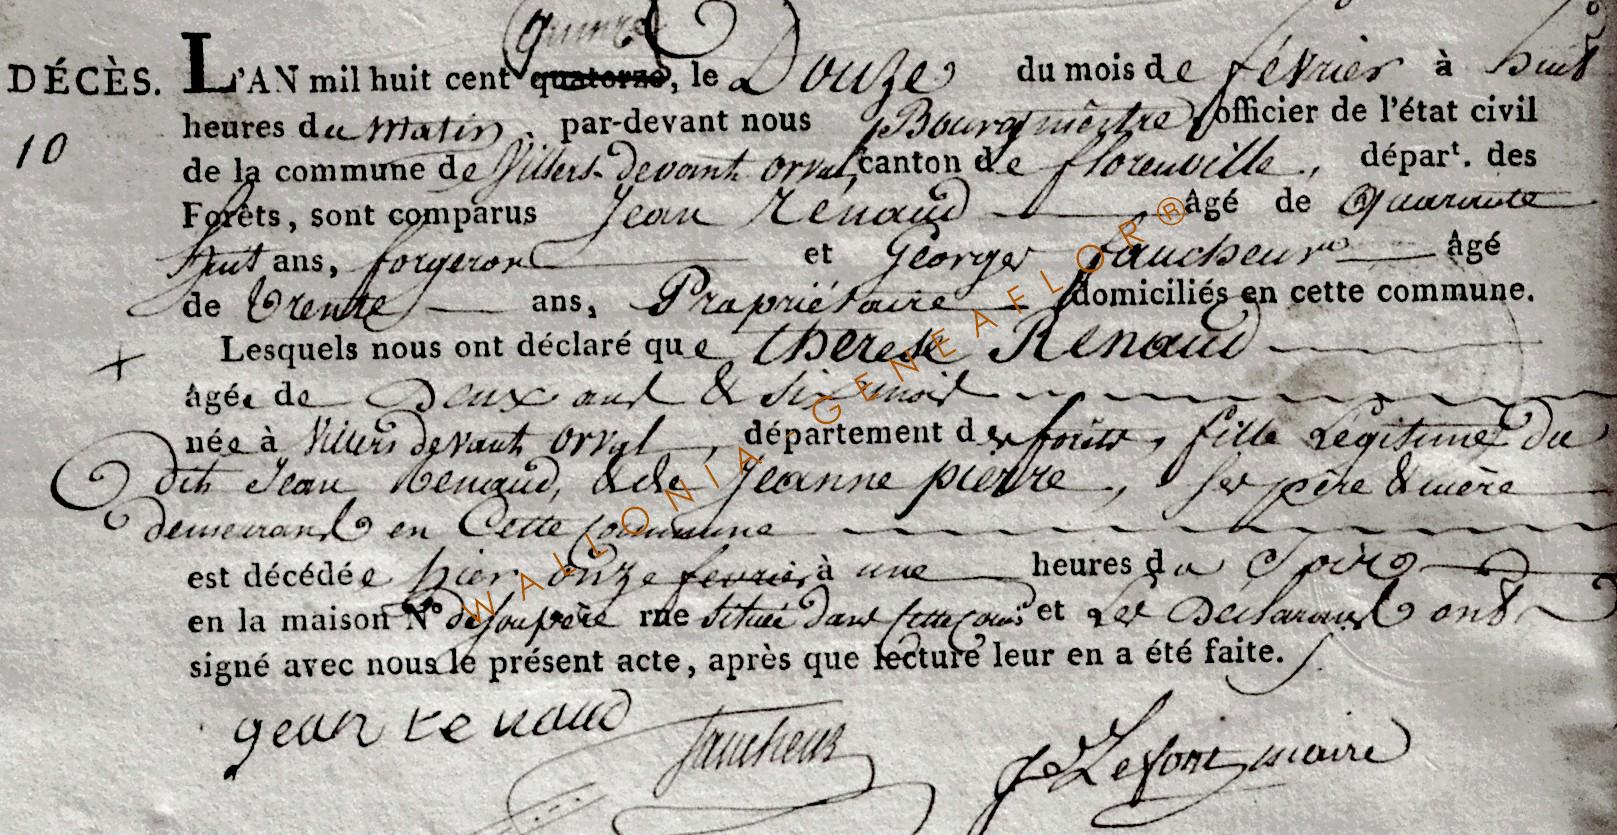 quinze
DÉCÈS. L'AN mil huit cent quatorze, le Douze du mois de février à huit
10
heures du matin, par-devant nous Bourgmêstre officier de l'état civil
de la commune de Villers-devant orval, canton de florenville, départ. des
Forêts, sont comparus Jean Renaud âgé de Quarante
huit ans, forgeron et Georges faucheur âgé
de trente ans, Propriétaire domiciliés en cette commune.
Lesquels nous ont déclaré que therese Renaud
+
âgée de Deux ans & six mois
née à Villers devant orval, département des forêts, fille Legitime du
dit Jean Renaud, & de Jeanne pierre, ses père & mère
demeurant en Cette Commune
est décédée hier onze fevrier à une heures du Soir
en la maison N° de son père rue située dans cette com et les Déclarant ont
signé avec nous le présent acte, après que lecture leur en a été faite.
jean renaud faucheur Lefort maire
WALLONIA-GENEAFLOR®